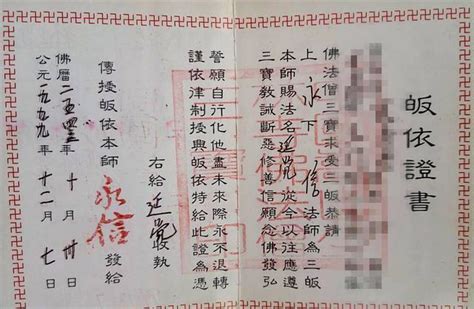 皈依證書
佛法僧三寶求受三皈恭請
上永下信法師為三皈
本師賜法名延覺從今以往應遵
三寶教誡斷惡修善信願念佛發弘
誓願自行化他盡未來際永不退轉
謹依律制授與皈依特給此證為憑
右給延覺收執
傳授皈依本師永信發給
佛曆二五四三年十月卅日
公元一九九九年十二月七日